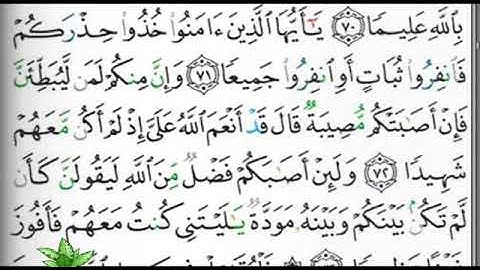 بِٱللَّهِ عَلِيمًا ٧٠ يَٰٓأَيُّهَا ٱلَّذِينَ ءَامَنُوا۟ خُذُوا۟ حِذْرَكُمْ
فَٱنفِرُوا۟ ثُبَاتٍ أَوِ ٱنفِرُوا۟ جَمِيعًا ٧١ وَإِنَّ مِنكُمْ لَمَن لَّيُبَطِّئَنَّ
فَإِنْ أَصَٰبَتْكُم مُّصِيبَةٌ قَالَ قَدْ أَنْعَمَ ٱللَّهُ عَلَىَّ إِذْ لَمْ أَكُن مَّعَهُمْ
شَهِيدًا ٧٢ وَلَئِنْ أَصَٰبَكُمْ فَضْلٌ مِّنَ ٱللَّهِ لَيَقُولَنَّ كَأَن
لَّمْ تَكُنۢ بَيْنَكُمْ وَبَيْنَهُۥ مَوَدَّةٌ يَٰلَيْتَنِى كُنتُ مَعَهُمْ فَأَفُوزَ